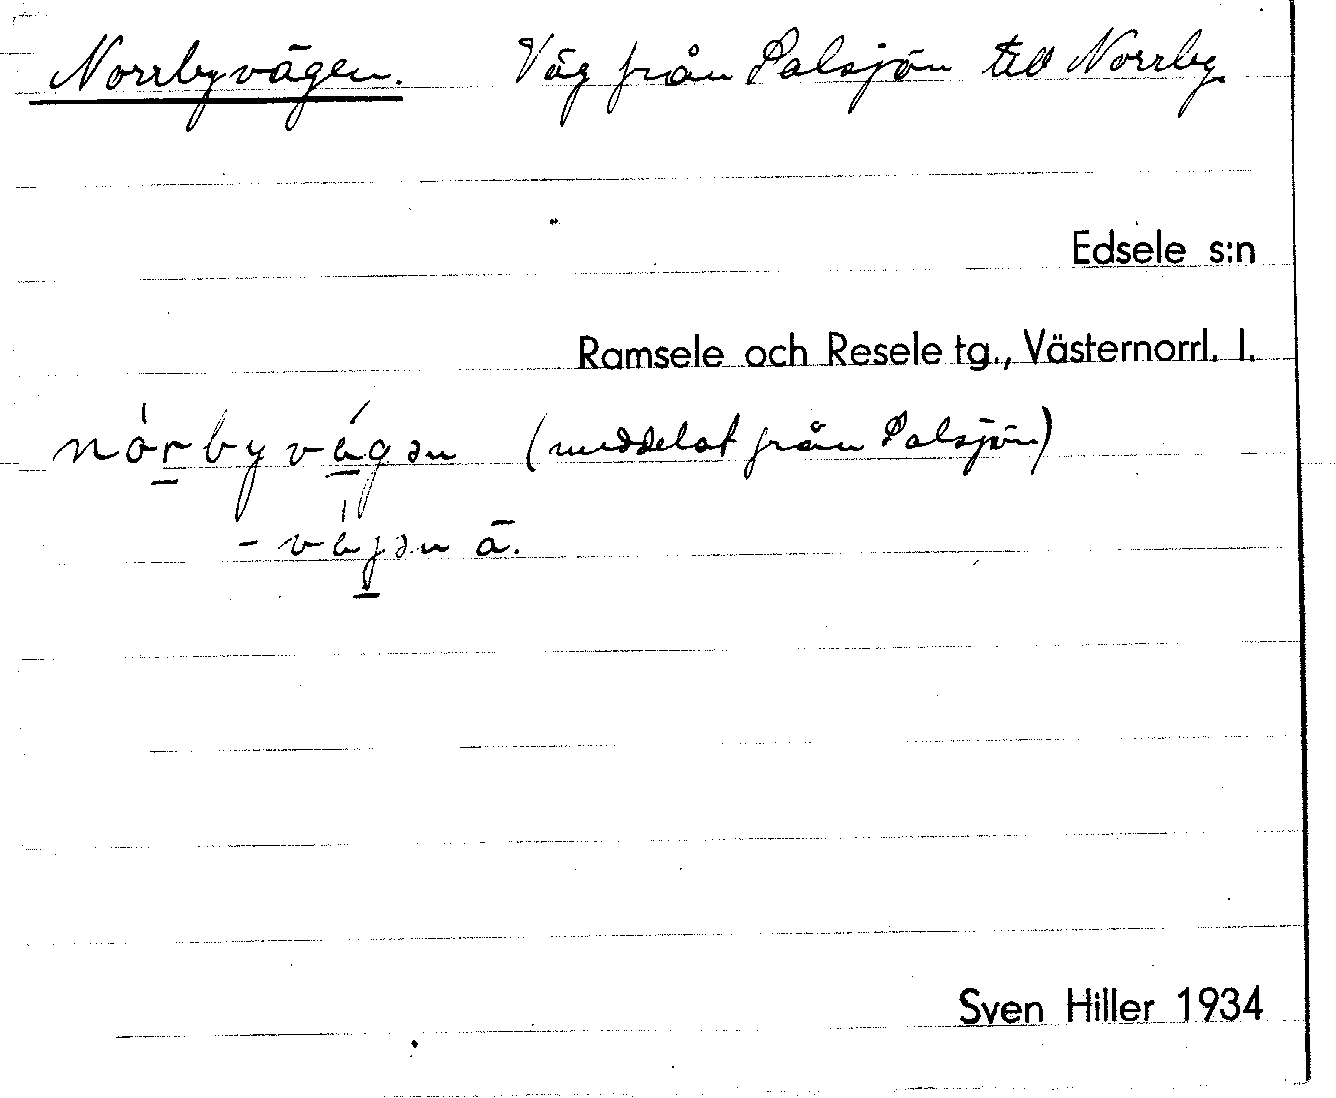 Norrbyvägen. Väg från Salsjön till Norrby
Edsele s:n
Ramsele och Resele tg., Västernorrl. l.
nórbyvǽgən (meddelat från Salsjön)
- vǽgən ā.
Sven Hiller 1934